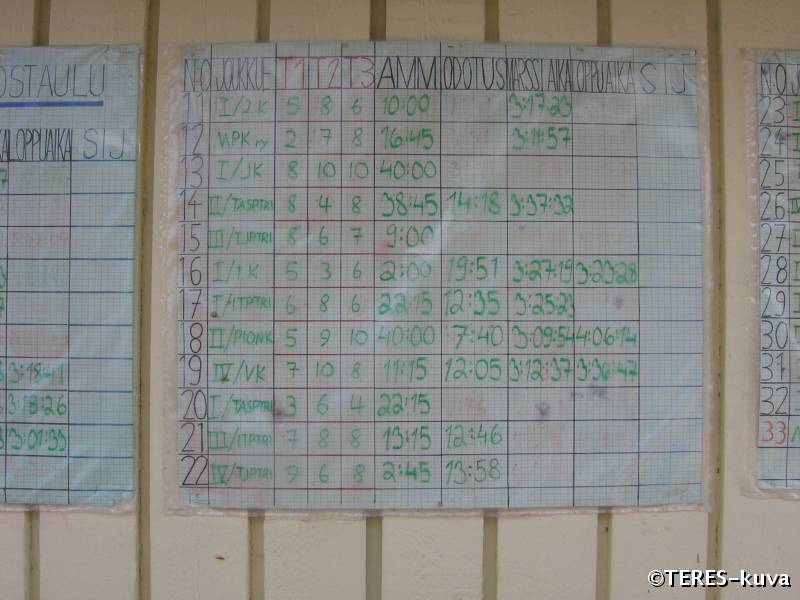 OSTAULU
LOPPUAIKA SIJ
3:18:26
3:01:33
NO JOUKKUE T1 T2 T3 AMM ODOTUS MARSSIAIKA LOPPUAIKA SIJ
11 I/2.K 5 8 6 10:00 3:17:23
12 MPK ry 2 7 8 16:45 3:11:57
13 I/JK 8 10 10 40:00
14 II/TASPTRI 8 4 8 38:45 14:18 3:37:32
15 III/TJPTRI 8 6 7 9:00
16 I/1.K 5 3 6 2:00 19:51 3:27:19 3:23:28
17 I/ITPTRI 6 8 6 22:15 12:35 3:25:23
18 II/PIONK 5 9 10 40:00 7:40 3:09:54 4:06:14
19 IV/VK 7 10 8 11:15 12:05 3:12:37 3:36:47
20 I/TASPTRI 3 6 4 22:15
21 III/ITPTRI 7 8 8 13:15 12:46
22 IV/TJPTRI 9 6 8 2:45 13:58
NO
23
24
25
26
27
28
29
30
31
32
33
©TERES-kuva